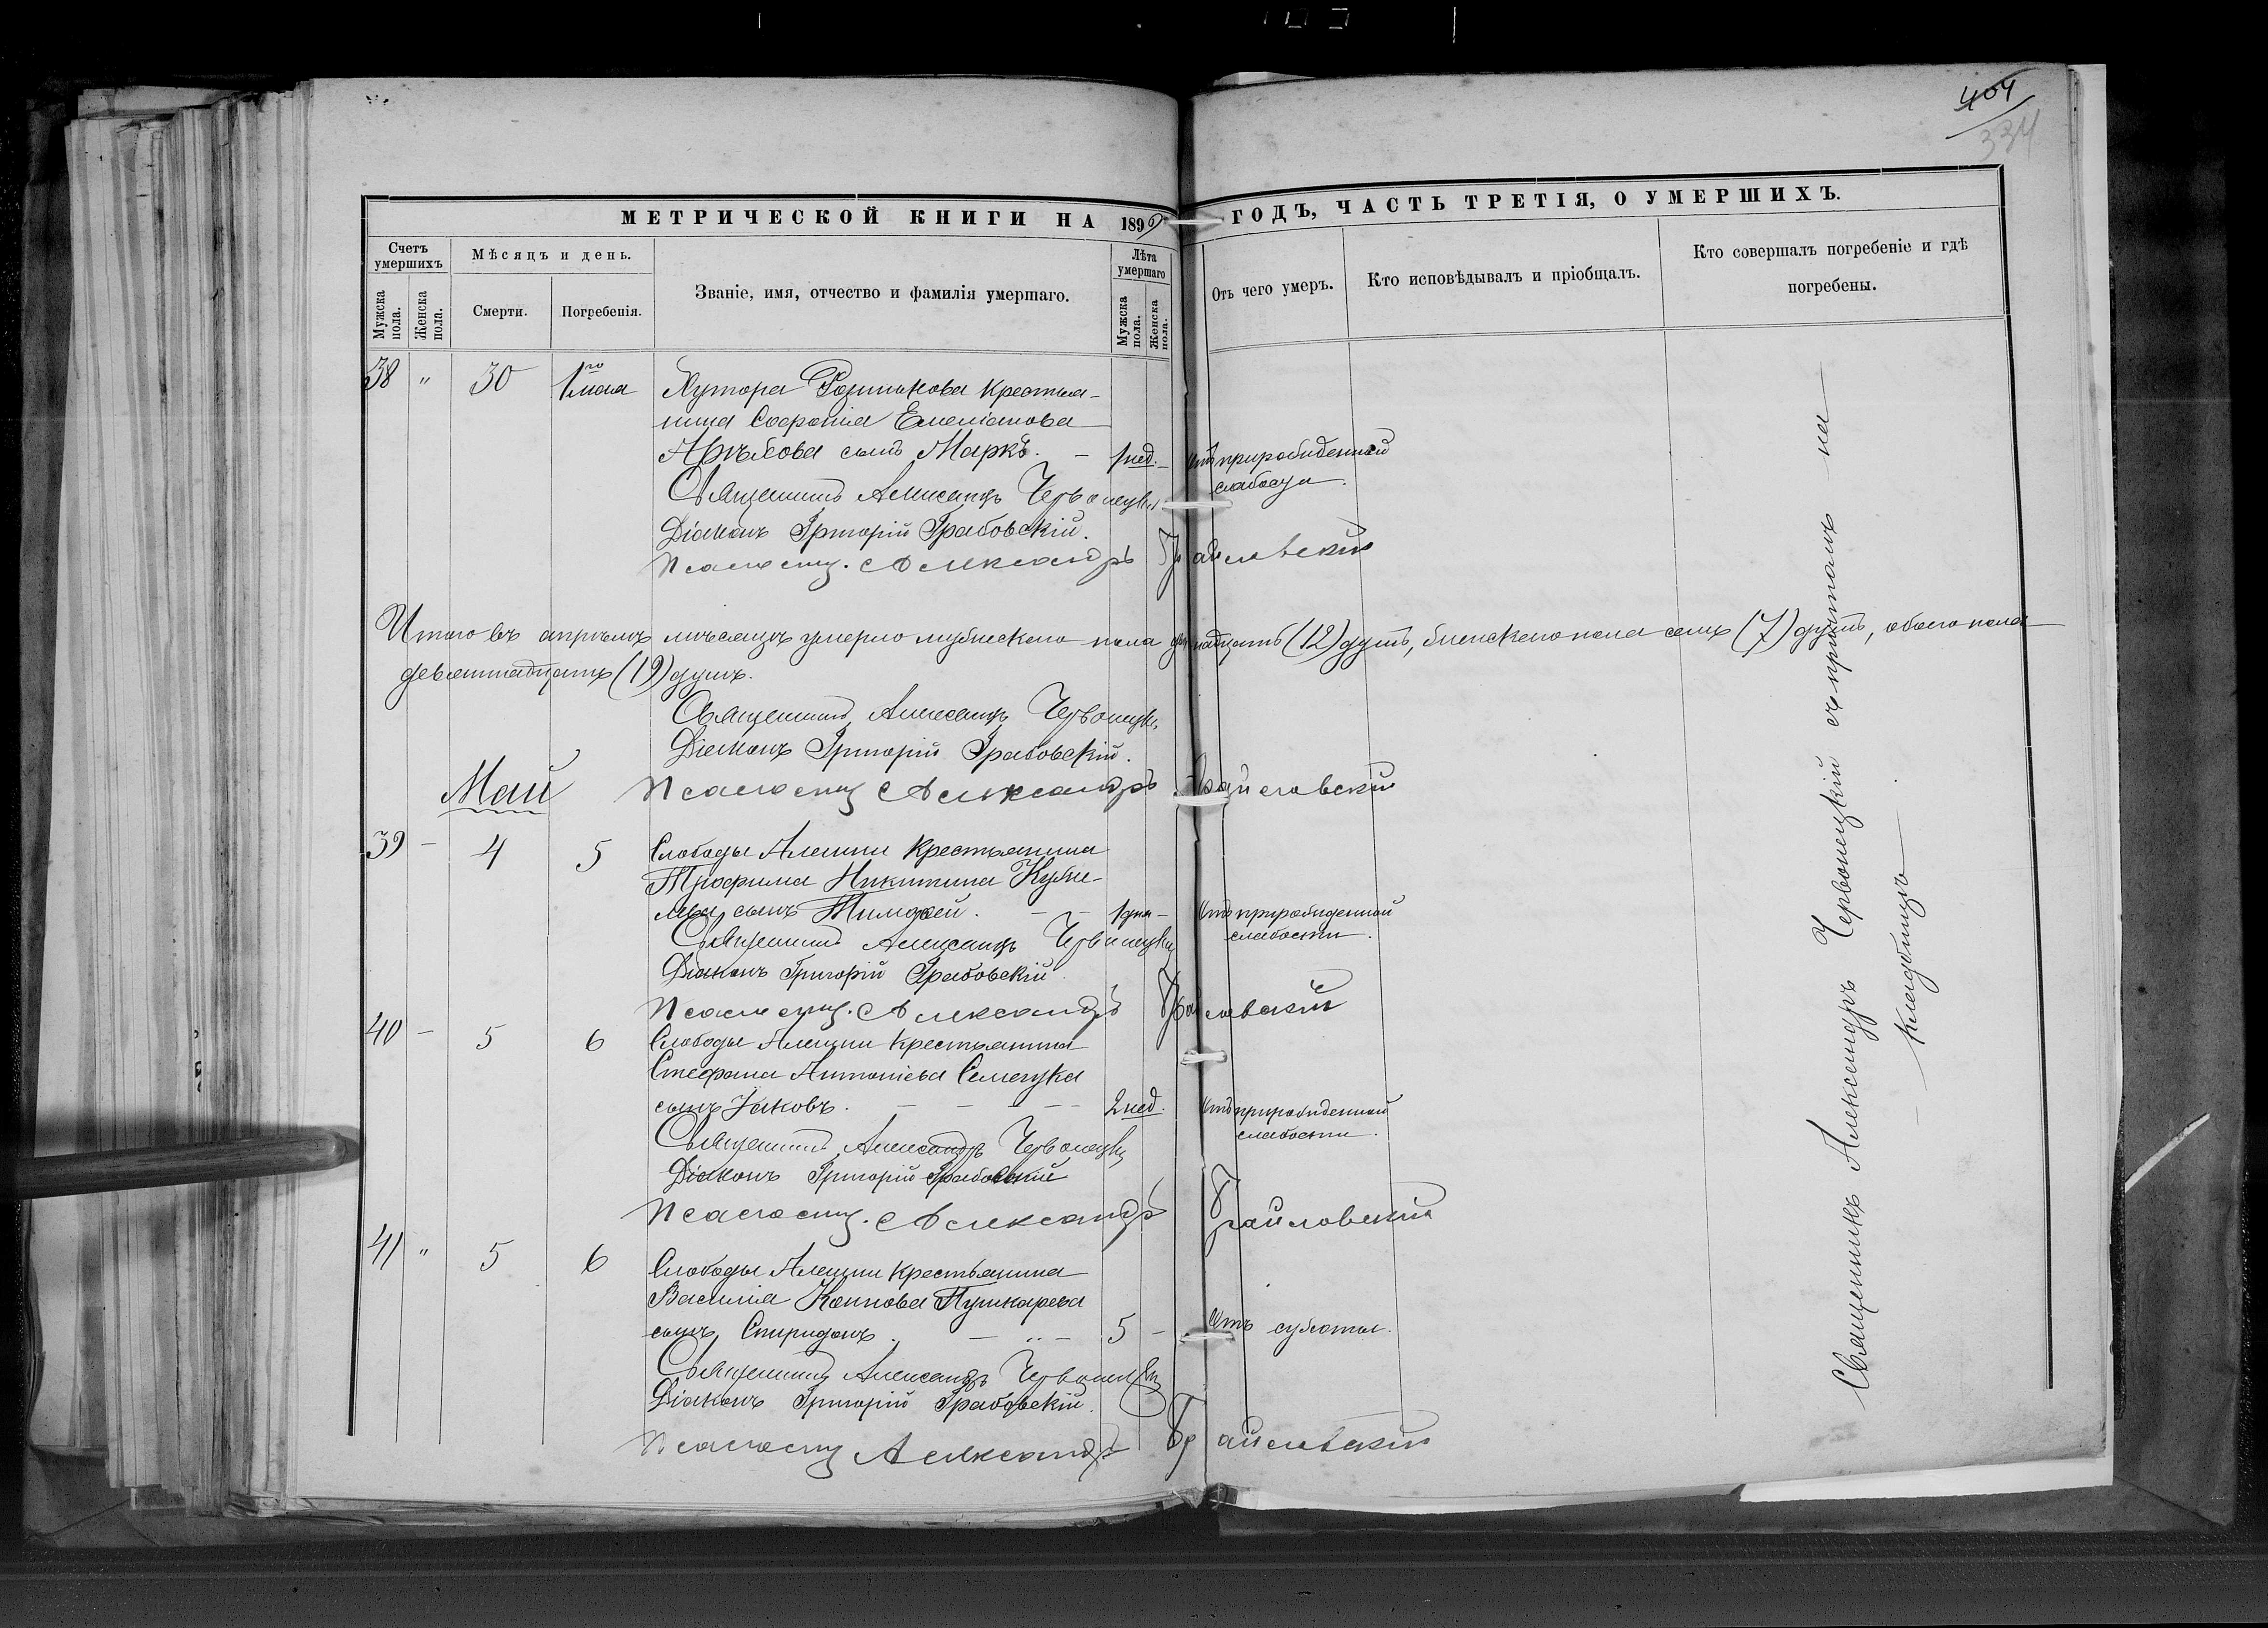 404
334
МЕТРИЧЕСКОЙ КНИГИ НА 1896 ГОДЪ, ЧАСТЬ ТРЕТІЯ, О УМЕРШИХЪ.
Счетъ умершихъ
Мужска пола.
Женска пола.
Мѣсяцъ и день.
Смерти.
Погребенія.
Званіе, имя, отчество и фамилія умершаго.
Лѣта умершаго
Мужска пола.
Женска пола.
Отъ чего умеръ.
Кто исповѣдывалъ и пріобщалъ.
Кто совершалъ погребеніе и гдѣ погребены.
38 " 30 1го мая Хутора крестья-
нина Софронія Емеліанова
сынъ Маркъ. — 1 нед. — Отъ прирожденной
слабости.
Священникъ Александръ Червонецкій
Діаконъ Григорій Грабовскій.
Псаломщ. Александръ
Итого въ апрѣлѣ мѣсяцѣ умерло мужескаго пола двѣнадцать (12) душъ, женскаго пола семь (7) душъ, обоего пола
девятнадцать (19) душъ.
Священникъ Александръ Червонецкій
Діаконъ Григорій Грабовскій.
Май
Псаломщ Александръ
39 — 4 5 Слободы Алешни крестьянина
Трофима Никитина
сынъ Тимофей. — — 1 дня — Отъ прирожденной
слабости.
Священникъ Александръ Червонецкій
Діаконъ Григорій Грабовскій
Псаломщ. Александръ
40 — 5 6 Слободы Алешни крестьянина
Стефана Антоніева Семечука
сынъ Іаковъ. — — — — 2 нед. Отъ прирожденной
слабости.
Священникъ Александръ Червонецкій
Діаконъ Григорій Грабовскій
Псаломщ. Александръ
41 " 5 6 Слободы Алешни крестьянина
Василія Пушкарева
сынъ Спиридонъ. — " — 5 — Отъ сухоты.
Священникъ Александръ Червонецкій
Діаконъ Григорій Грабовскій.
Псаломщ Александръ
Священникъ Александръ Червонецкій съ причтомъ на
— кладбищѣ —